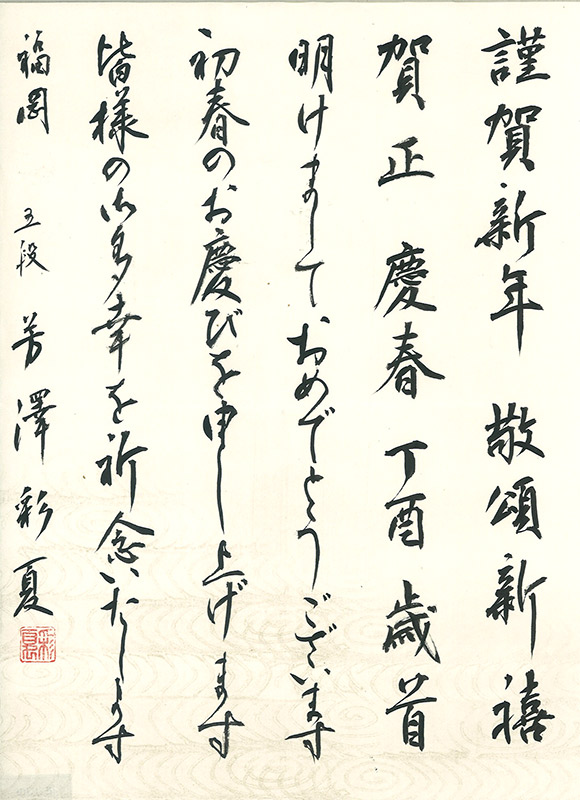 謹賀新年 敬頌新禧
賀正 慶春 丁酉 歳首
明けましておめでとうございます
初春のお慶びを申し上げます
皆様の御多幸を祈念いたします
福岡 五段 芳澤彩夏